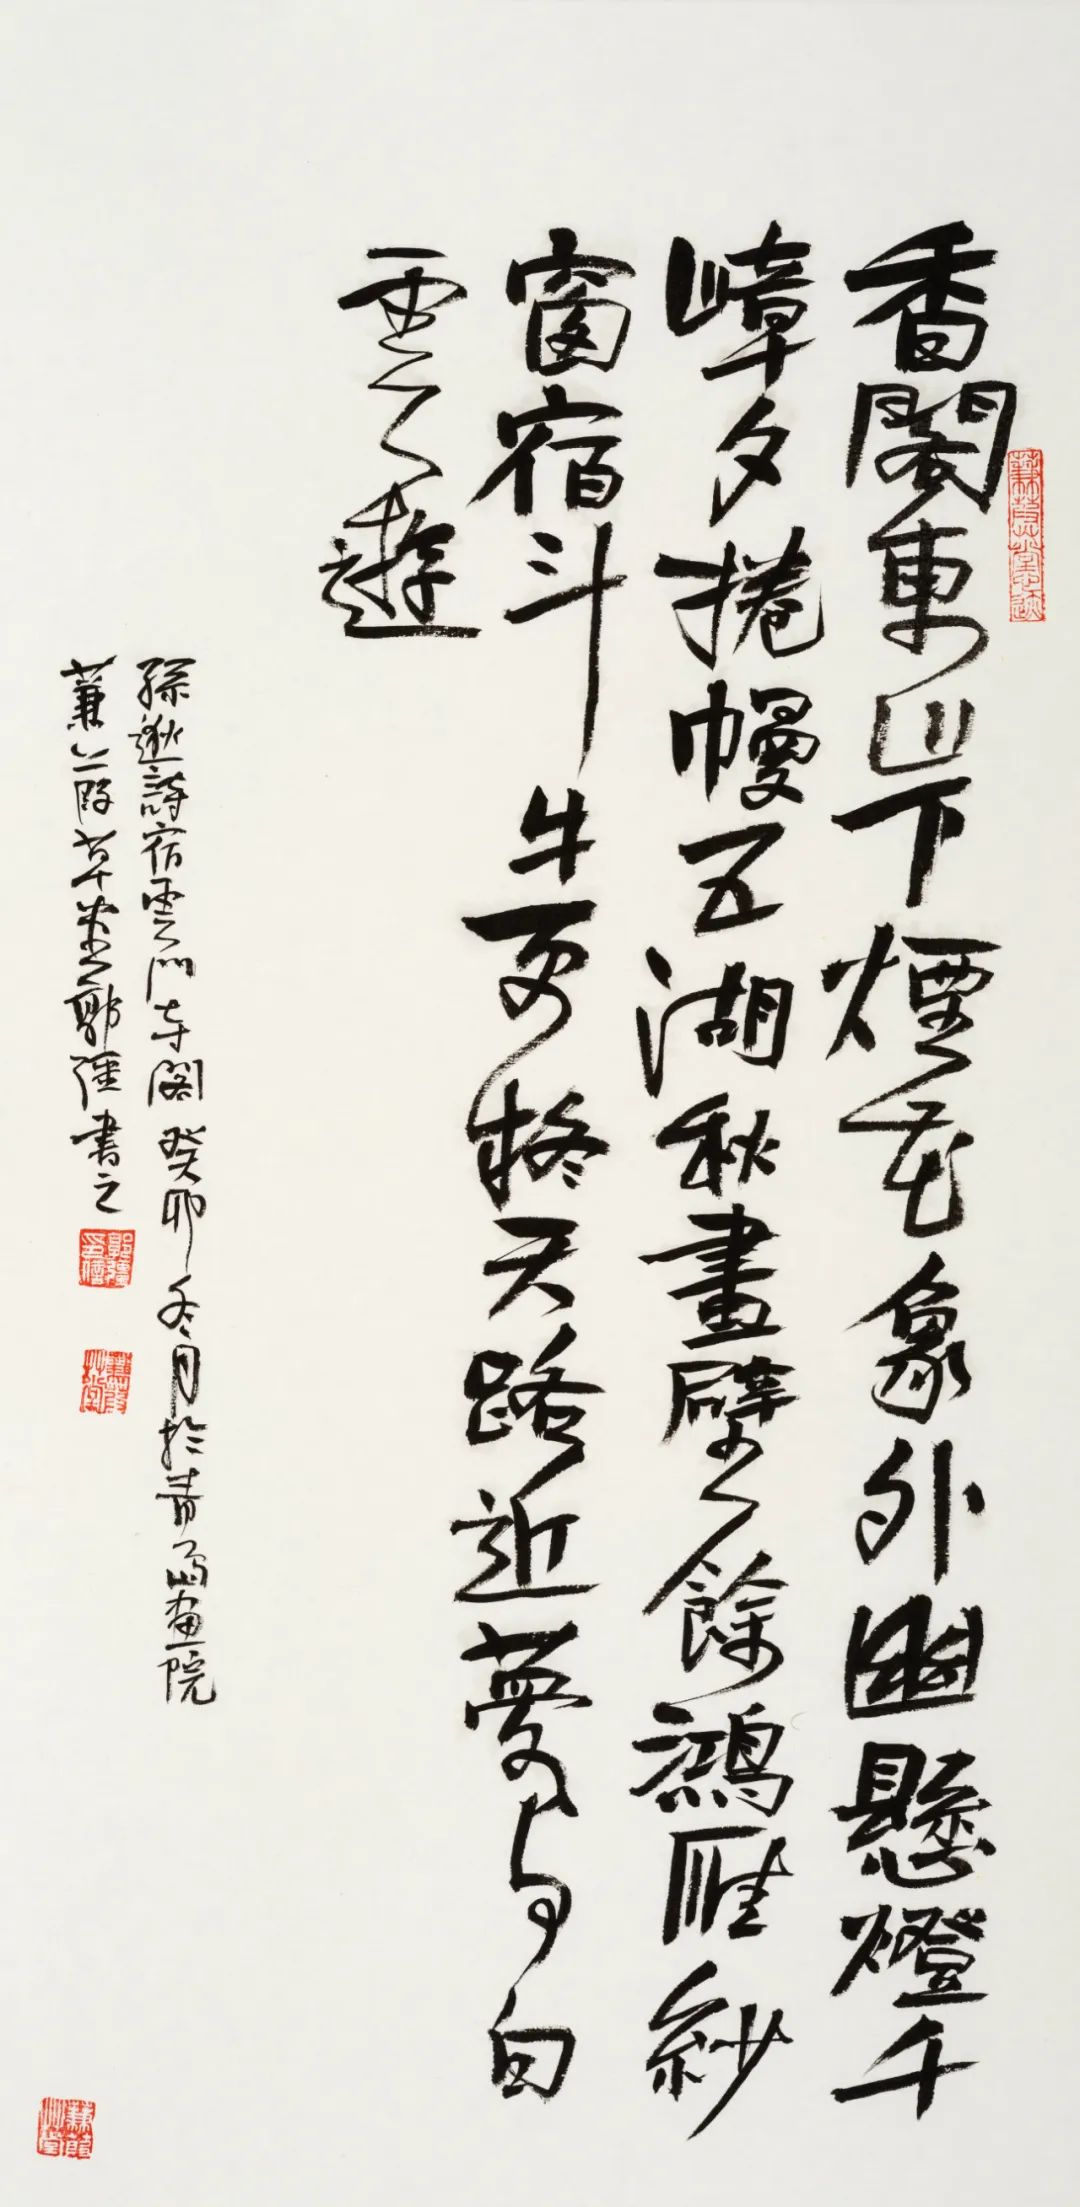 香閣東山下煙花象外幽懸燈千
嶂夕捲幔五湖秋畫壁餘鴻雁紗
窗宿斗牛更疑天路近夢与白
雲遊
孫逖詩宿雲門寺閣癸卯冬月於青島畫院
蒹葭草堂郭強書之